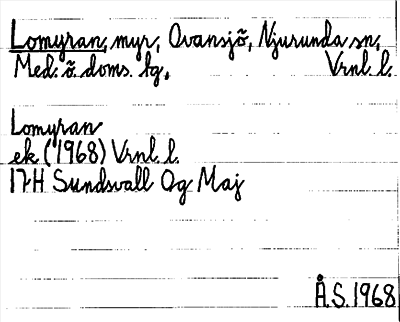 Lomyran, myr, Ovansjö, Njurunda sn,
Med. ö. doms. lg, Vrnl. l.
Lomyran
ek (1968) Vrnl. l.
17H Sundsvall Og Maj
Å.S. 1968